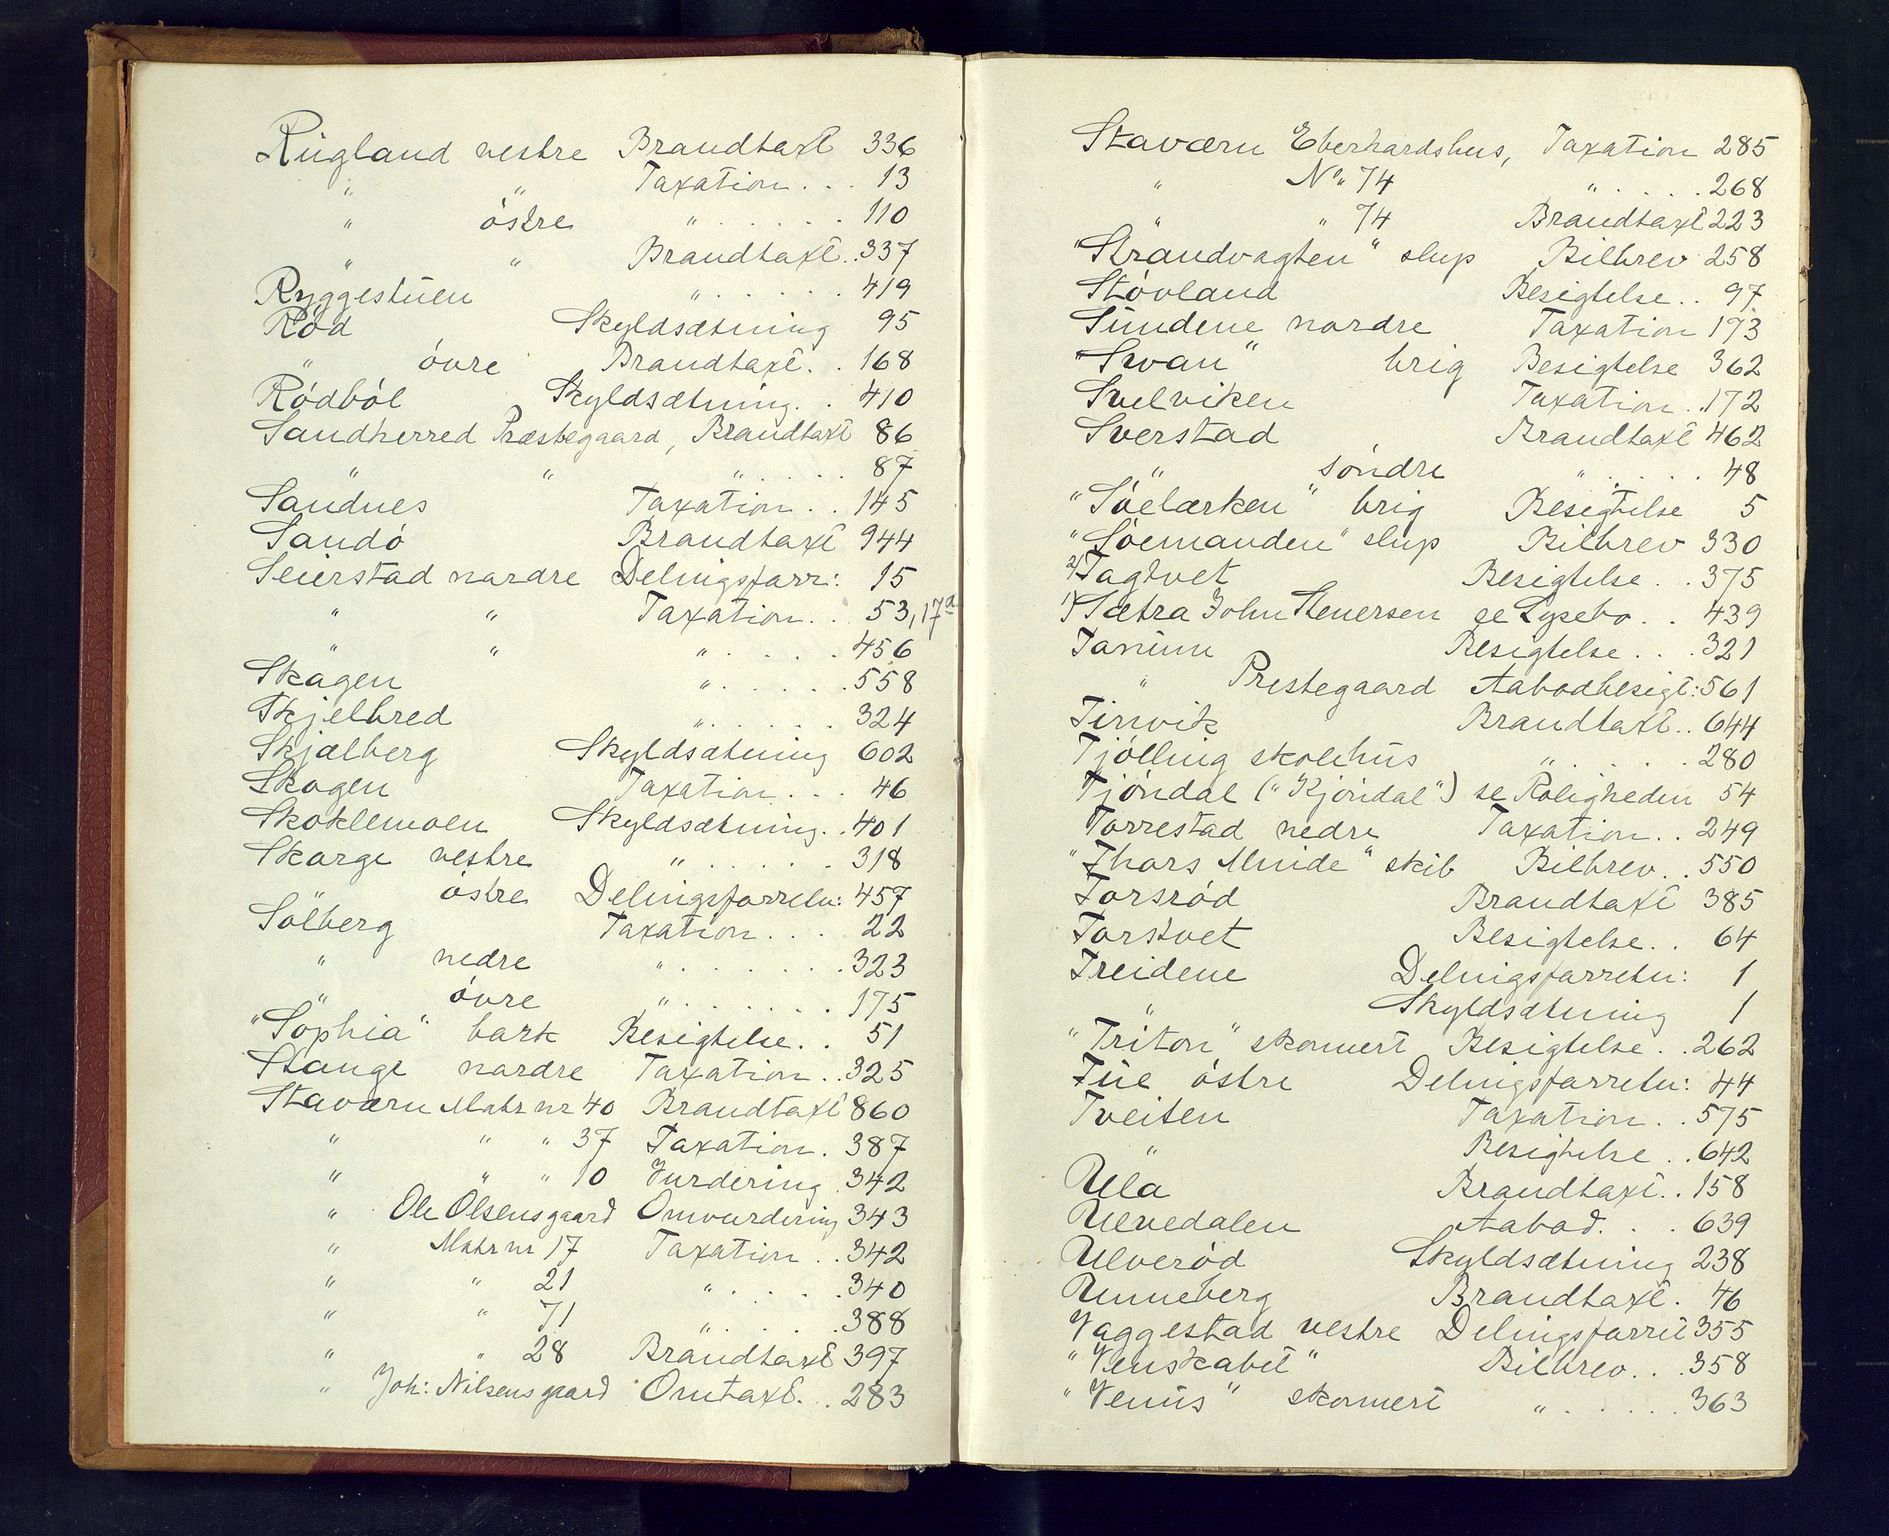 Rugland vestre Brandtaxt 336
" " Taxation . . . 13
" östre " . . . . . . 110
" " Brandtaxt . . 337
Ryggestuen " . . . . . . 419
Röd Skyldsætning 95
" övre Brandtaxt . . 168
Rödböl Skyldsætning . . 410
Sandherred Præstegaard, Brandtaxt 86
" " " . . . . . 87
Sandnes Taxation . . 145
Sandö Brandtaxt 944
Seierstad nordre Delingsforr: 15
" " Taxation . . 53, 17a
" " " . . . . . 456
Skagen " . . . . . . 558
Skjelbred " . . . . . . 324
Skjælberg Skyldsætning 602
Skogen Taxation . . . 46
Skoklemoen Skyldsætning . . 401
Skorge vestre " . . . . . . 318
östre Delingsforretn: 457
Solberg Taxation . . . 22
" nedre " . . . . . . . 323
" övre " . . . . . . . 175
"Sophia" bark Besigtelse . . 51
Stange nordre Taxation . . 325
Staværn Matr nr 40 Brandtaxt 860
" " " 37 Taxation . 387
" " " 10 Vurdering . 342
" Ole Olsensgaard Omvurdering 343
" Matr nr 17 Taxation . . 342
" " 21 " . . . . . 340
" " 71 " . . . . . 388
" " 28 Brandtaxt 397
" Joh: Nilsensgaard Omtaxt . . . 283
Staværn Eberhardshus, Taxation 285
" No 74 " . . . . . 268
" " 74 Brandtaxt 223
"Strandvagten" slup Bilbrev 258
Stövland Besigtelse . . 97
Sundene nordre Taxation 173
"Svan" brig Besigtelse 362
Svelviken Taxation . . 172
Sverstad Brandtaxt 462
" söndre " . . . . . 48
"Söelærken" brig Besigtelse 5
"Söemanden" slup Bilbrev 330
2) Tagtvet Besigtelse . . 375
1) Sætra John Steversen se Lysebo . . 439
Tanum Besigtelse . . . 321
" Prestegaard Aabodbesigt: 561
Tinvik Brandtaxt . . 644
Tjölling skolehus " . . . . . . 280
Tjöndal ("Kjöndal") se Roligheden 54
Torrestad nedre Taxation . . 249
"Thors Minde" skib Bilbrev . . 550
Torsröd Brandtaxt 385
Torstvet Besigtelse . . 64
Treidene Delingsforretn: 1
" Skyldsætning 1
"Triton" skonnert Besigtelse . . 262
Tue östre Delingsforretn: 44
Tveiten Taxation . . 575
" Besigtelse . . 642
Ula Brandtaxt . . 158
Ulvedalen Aabod . . . 639
Ulveröd Skyldsætning 238
Unneberg Brandtaxt . 46
Vaggestad vestre Delingsforret 355
"Venskabet" Bilbrev . . . 358
"Venus" skonnert " . . . . . . 363